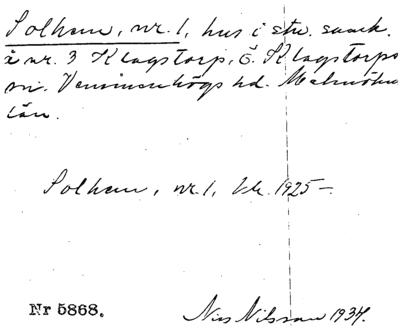 Solhem, nr. 1, hus i stv. samh.
i nr. 3 Klagstorp, Ö. Klagstorps
sn. Vemmenhögs hd. Malmöhus
län.
Solhem, nr. 1, Vk. 1925 –
Nr 5868.
Nils Nilsson 1934.